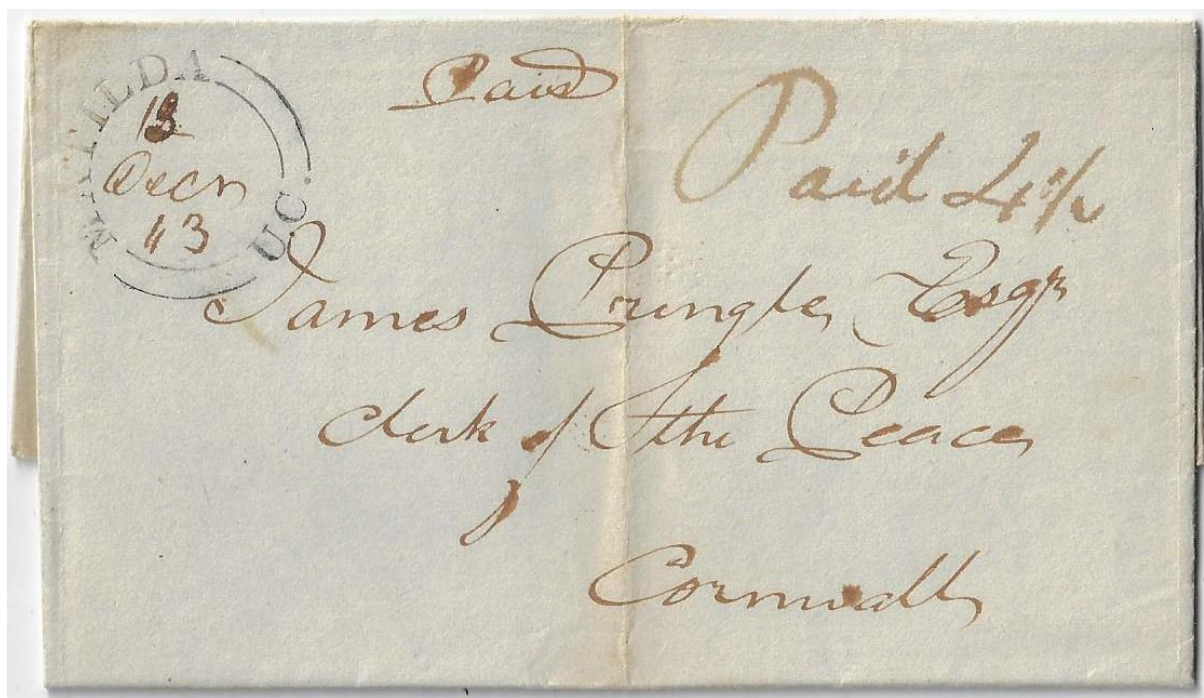 MATILDA
Decr
43
U.C.
Paid
Paid 4½
James Pringle, Esqr
clerk of the Peace,
Cornwall,